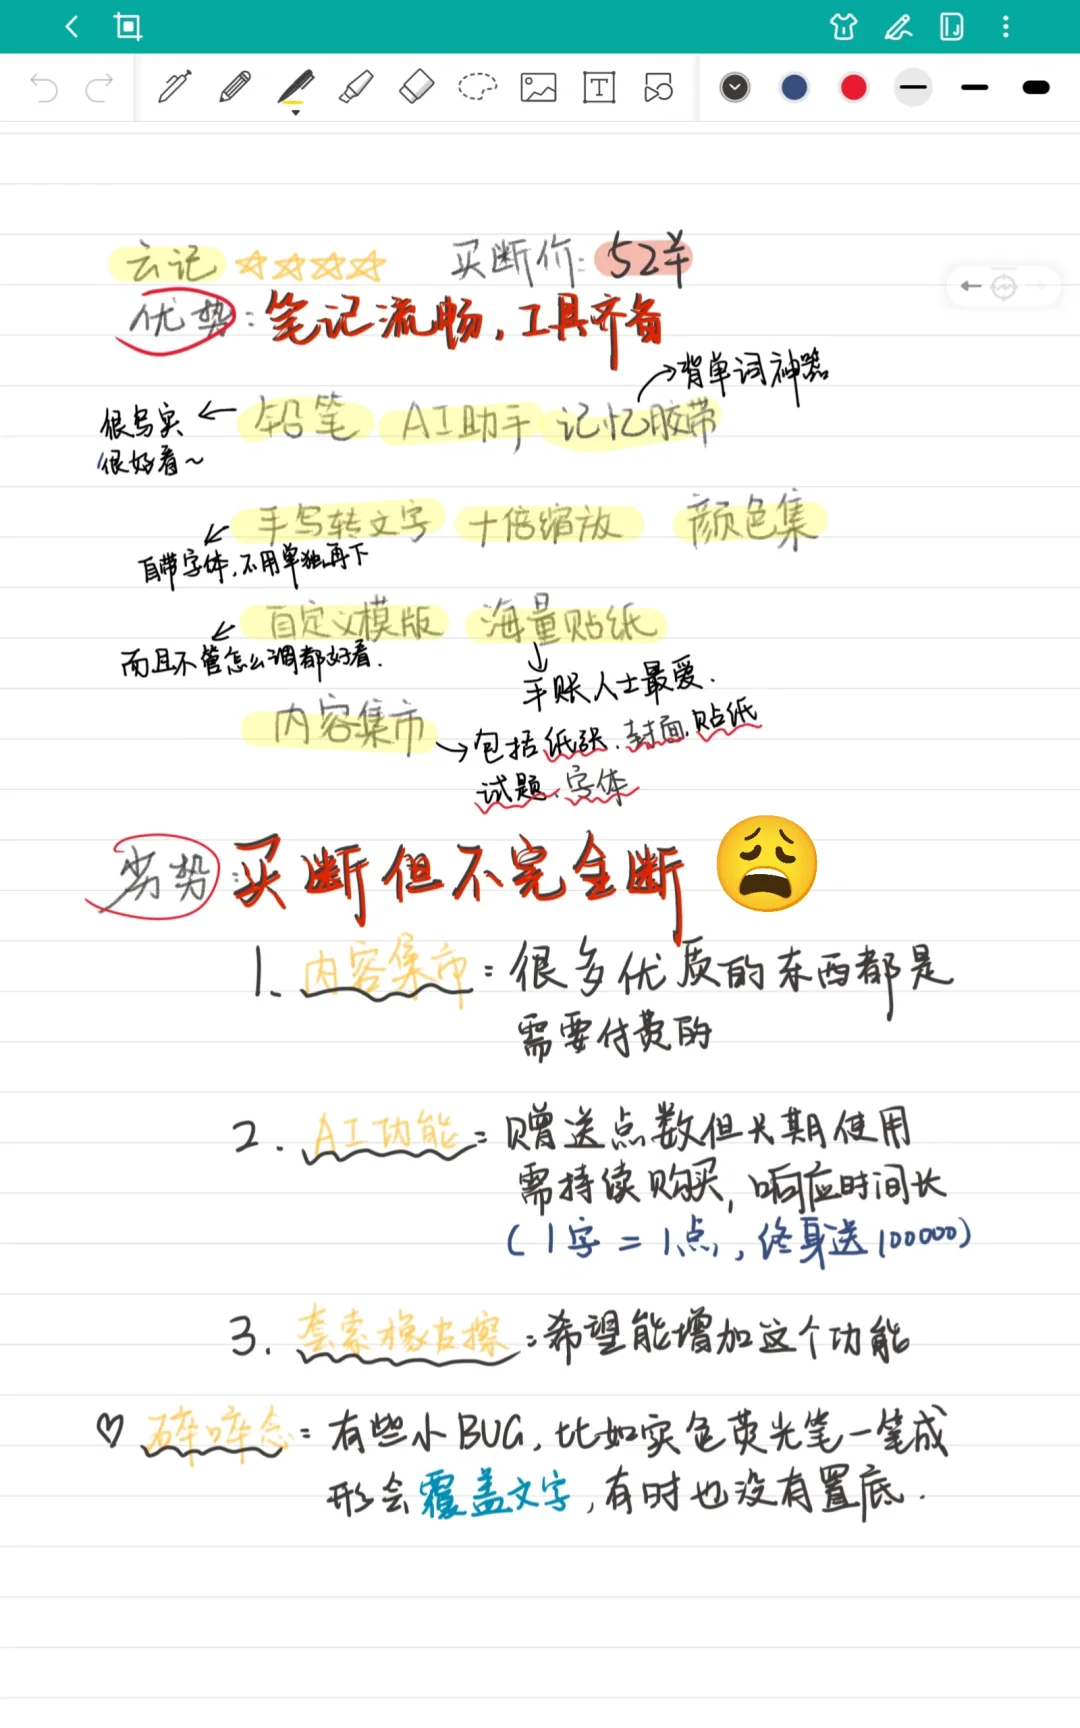 云记 ☆☆☆☆ 买断价: 52羊
优势: 笔记流畅, 工具齐备
→背单词神器
很写实 ← 铅笔 AI助手 记忆胶带
很好看~
手写转文字 十倍缩放 颜色集
自带字体, 不用单独再下
自定义模版 海量贴纸
而且不管怎么调都好看.
手账人士最爱.
内容集市 →包括纸张、封面、贴纸
试题、字体
劣势: 买断但不完全断 😩
1、内容集市: 很多优质的东西都是
需要付费的
2. AI功能: 赠送点数但长期使用
需持续购买, 响应时间长
(1字=1点, 终身送100000)
3. 套索橡皮擦: 希望能增加这个功能
♡ 碎碎念: 有些小BUG, 比如实色荧光笔一笔成
形会覆盖文字, 有时也没有置底.